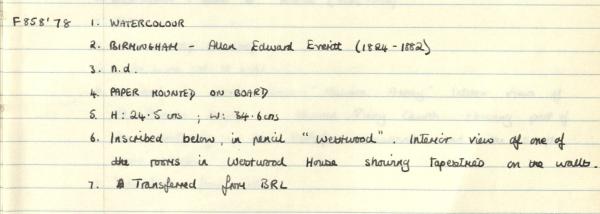 F858'78 1. WATERCOLOUR
2. BIRMINGHAM - Allen Edward Everitt (1824-1882)
3. n.d.
4. PAPER MOUNTED ON BOARD
5. H: 24.5 cms ; W: 34.6 cms
6. Inscribed below, in pencil "Westwood". Interior view of one of
the rooms in Westwood House showing tapestries on the walls.
7. Transferred from BRL